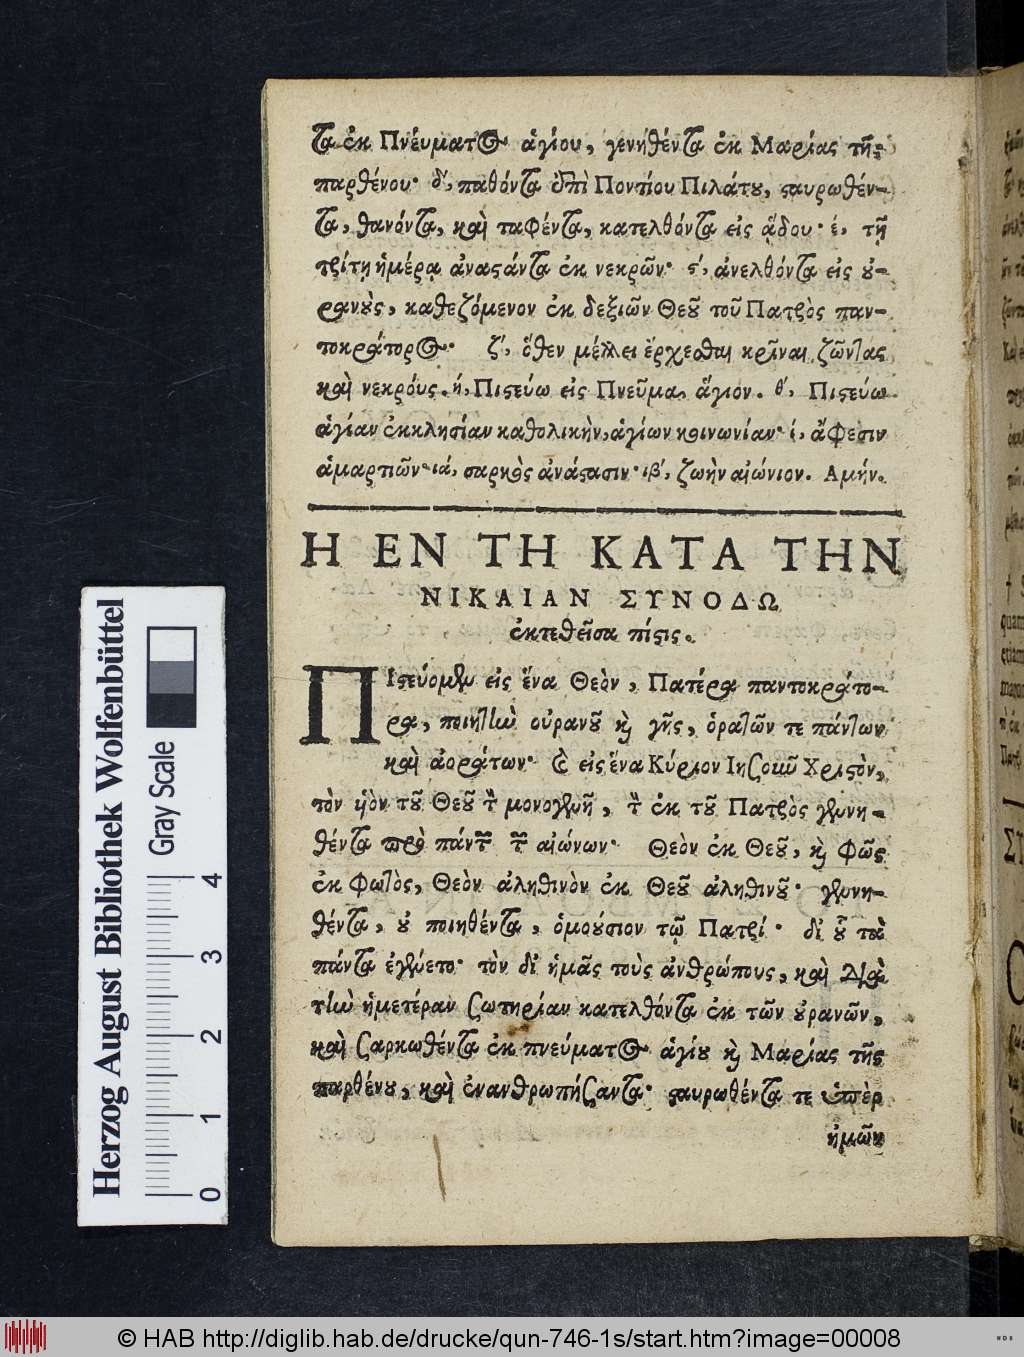 τα ἐκ Πνεύματος ἁγίου, γενηθέντα ἐκ Μαρίας τῆς
παρθένου· δ', παθόντα ἐπὶ Ποντίου Πιλάτου, ϛαυρωθέν-
τα, θανόντα, καὶ ταφέντα, κατελθόντα εἰς ᾅδου· έ, τῇ
τρίτῃ ἡμέρᾳ ἀναϛάντα ἐκ νεκρῶν· ϛ', ἀνελθόντα εἰς οὐ-
ρανοὺς, καθεζόμενον ἐκ δεξιῶν Θεοῦ τοῦ Πατρὸς παν-
τοκράτορος· ζ', ὅθεν μέλλει ἔρχεσθαι κρῖναι ζῶντας
καὶ νεκρούς. ή, Πιϛεύω εἰς Πνεῦμα ἅγιον. θ', Πιϛεύω
ἁγίαν ἐκκλησίαν καθολικὴν, ἁγίων κοινωνίαν· ί, ἄφεσιν
ἁμαρτιῶν· ιά, σαρκὸς ἀνάϛασιν· ιβ', ζωὴν αἰώνιον. Αμήν.
Η ΕΝ ΤΗ ΚΑΤΑ ΤΗΝ
ΝΙΚΑΙΑΝ ΣΥΝΟΔΩ
ἐκτεθεῖσα πίϛις.
ΠΙϛεύομεν εἰς ἕνα Θεὸν, Πατέρα παντοκράτο-
ρα, ποιητὴν οὐρανοῦ καὶ γῆς, ὁρατῶν τε πάντων
καὶ ἀοράτων· καὶ εἰς ἕνα Κύριον Ἰησοῦν Χριϛὸν,
τὸν υἱὸν τοῦ Θεοῦ τὸν μονογενῆ, τὸν ἐκ τοῦ Πατρὸς γεννη-
θέντα πρὸ πάντων τῶν αἰώνων· Θεὸν ἐκ Θεοῦ, καὶ φῶς
ἐκ Φωτὸς, Θεὸν ἀληθινὸν ἐκ Θεοῦ ἀληθινοῦ· γεννη-
θέντα, οὐ ποιηθέντα, ὁμούσιον τῷ Πατρί· δι' οὗ τὰ
πάντα ἐγένετο· τὸν δι' ἡμᾶς τοὺς ἀνθρώπους, καὶ διὰ
τὴν ἡμετέραν σωτηρίαν κατελθόντα ἐκ τῶν οὐρανῶν,
καὶ σαρκωθέντα ἐκ πνεύματος ἁγίου καὶ Μαρίας τῆς
παρθένου, καὶ ἐνανθρωπήσαντα· ϛαυρωθέντα τε ὑπὲρ
ἡμῶν
Herzog August Bibliothek Wolfenbüttel
Gray Scale
0 1 2 3 4
© HAB http://diglib.hab.de/drucke/qun-746-1s/start.htm?image=00008